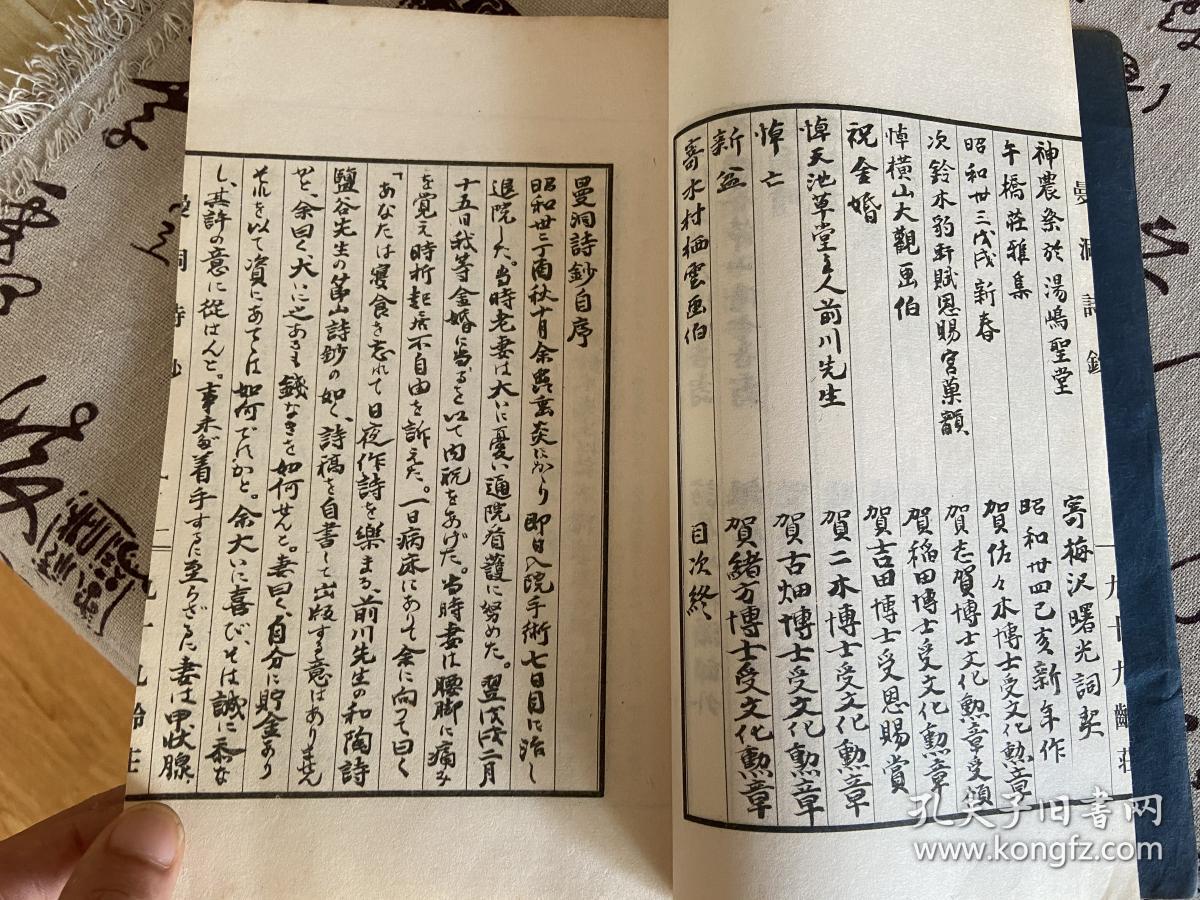 神農祭於湯嶋聖堂
寄梅沢曙光詞契
午橋荘雅集
昭和卅四己亥新年作
昭和卅三戊戌新春
賀佐々木博士受文化勲章
次鈴木豹軒賦恩賜宮菓韻
賀志賀博士文化勲章受領
悼横山大観画伯
賀稲田博士受文化勲章
祝金婚
賀吉田博士受恩賜賞
悼天池草堂主人前川先生
賀二木博士受文化勲章
悼亡
賀古畑博士受文化勲章
新盆
賀緒方博士受文化勲章
寄水村栖雲画伯
目次終
曼洞詩鈔
九十九齢荘
曼洞詩鈔自序
昭和卅二丁酉秋十月余虫垂炎にかゝり即日入院手術七日目に治し
退院した。当時老妻は大いに憂い通院看護に努めた。翌戊戌二月
十五日我等金婚に当るを以て内祝をあげた。当時妻は腰脚に痛み
を覚え時折起居不自由を訴えた。一日病床にありて余に向って曰く
「あなたは寝食を忘れて日夜作詩を楽まる、前川先生の和陶詩
鹽谷先生の箒山詩鈔の如く、詩稿を自書して出版する意はありませんか
と、余曰く、大いに之あるも銭なきを如何せんと。妻曰く、自分に貯金あり
それを以て資にあてては如何ですかと。余大いに喜び、そは誠に忝な
し、其許の意に従はんと。事未だ着手するに至らざるに妻は甲状腺
曼洞詩鈔
九十九齢荘
孔夫子旧书网
www.kongfz.com